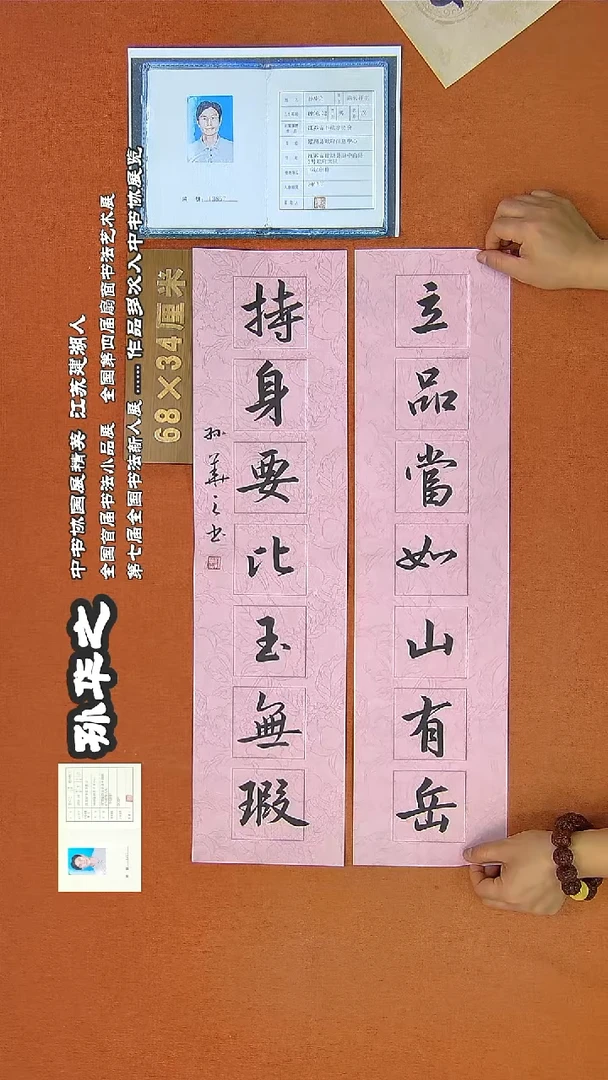 立品當如山有岳
持身要比玉無瑕
孙華之书
68×34厘米
孙华之
中书协国展精英 江苏建湖人
全国首届书法小品展 全国第四届扇面书法艺术展
第七届全国书法新人展 ......作品多次入中书协展览